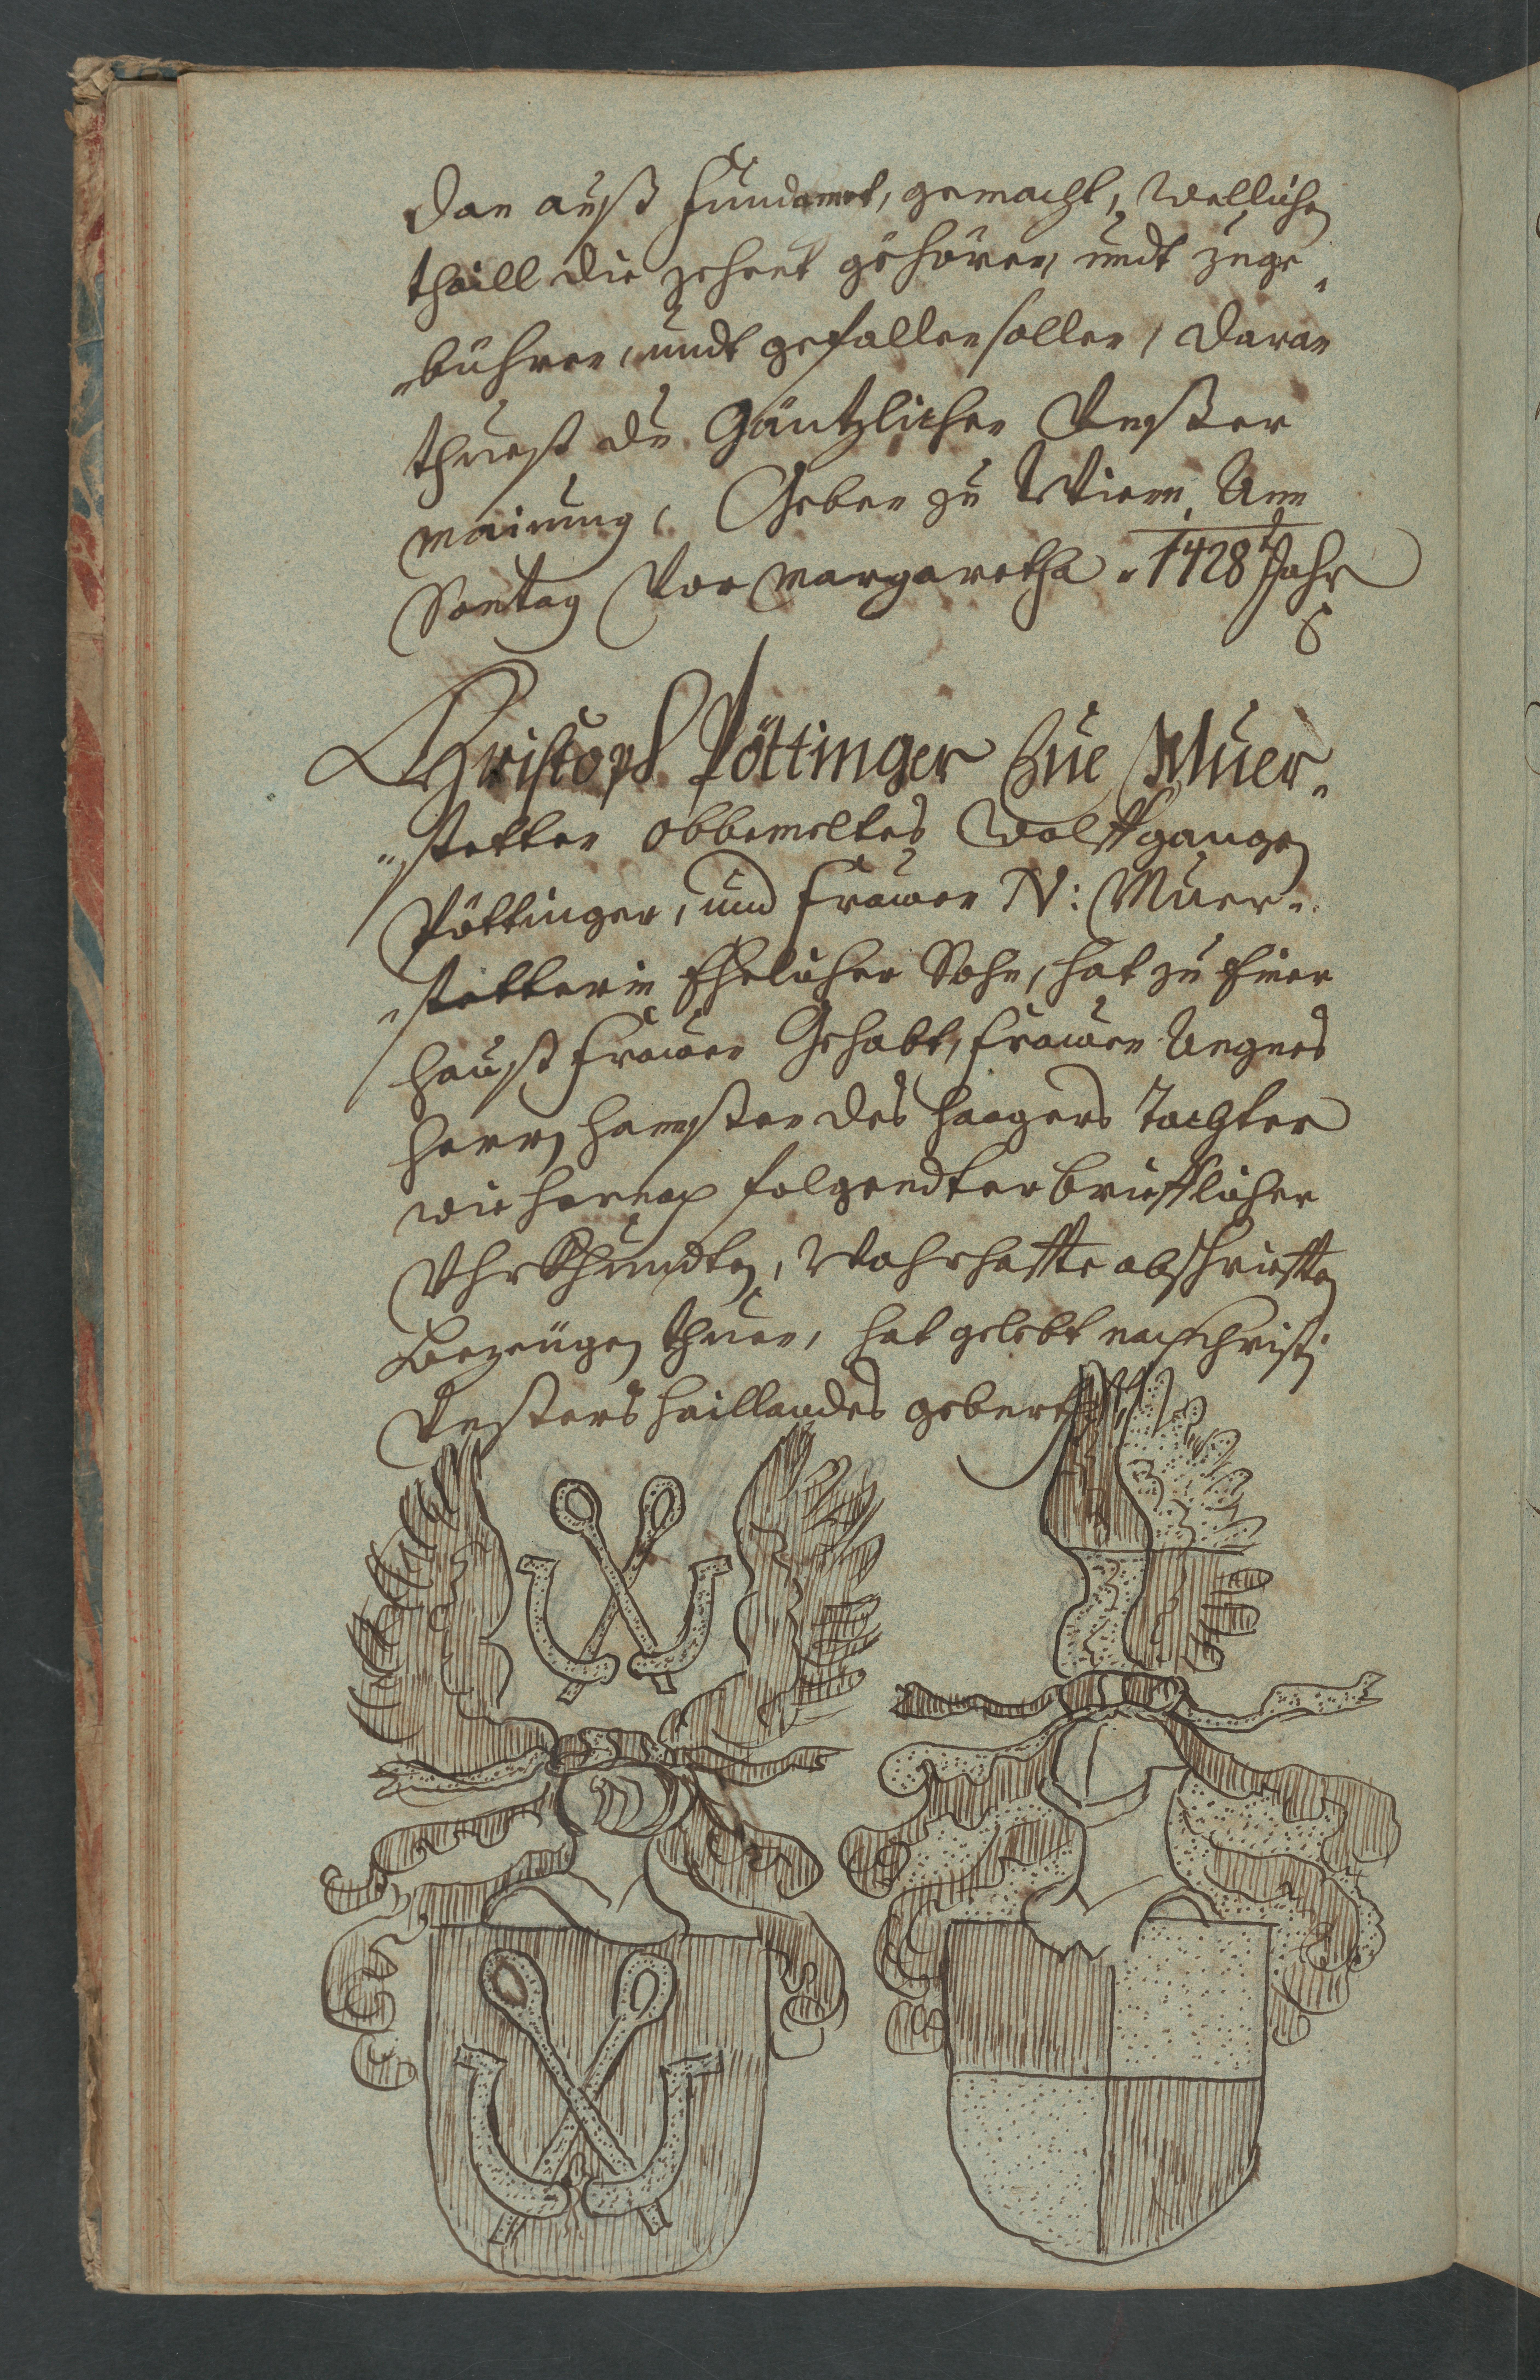 dan auß fundament, gemacht, wellichen
thaill die zehent gehören, undt zuge„
„bühren, undt gefallen sollen, daran
thuest du Gäntzlichen Unßer
mainung, Geben zu Wienn Ann
Sontag Vor Margaretha „1428t Jahr
Christoph Pöttinger Zue Muer„
„stetten obbemeltes Wolffgangen
Pöttinger, und Frawen N: Muer„
„stetterin Ehelicher Sohn, hat zu einer
haußfrawen Gehabt, Frawen Angnes
Herrn Hannßen des Haagers Tochter
wie hernach folgendter brieflicher
Uhrkhundten, Wahrhaffte abschrifften
Bezeugen thuen, hat gelebt nach Christi
Unßers haillandes geburth